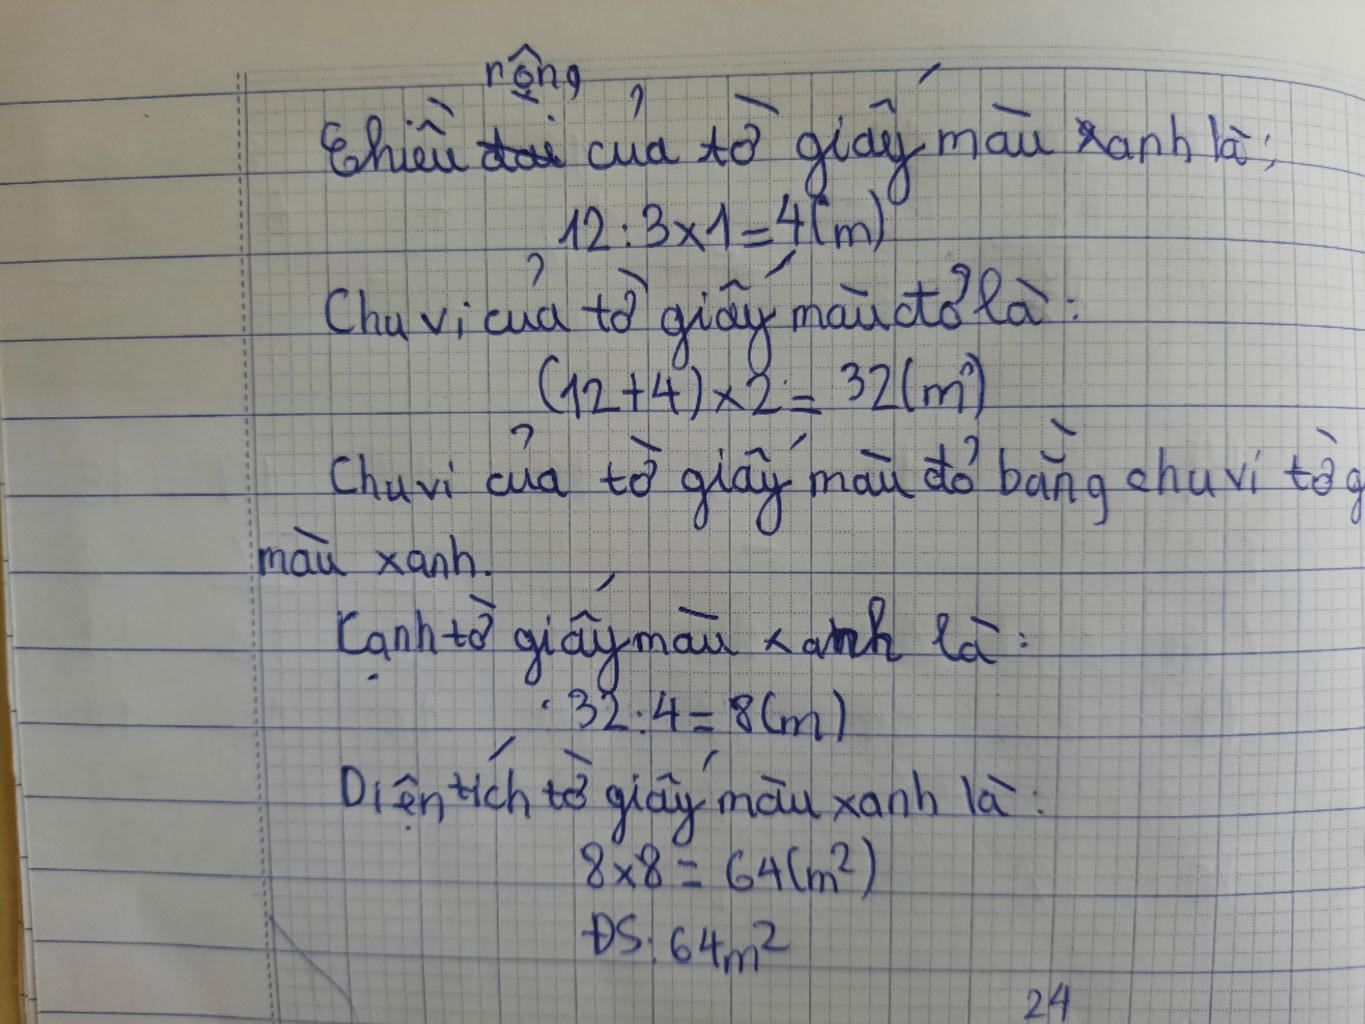 rộng
Chiều dài của tờ giấy màu xanh là:
12:3x1=4(m)
Chu vi của tờ giấy màu đỏ là:
(12+4)x2=32(m)
Chu vi của tờ giấy màu đỏ bằng chu vi tờ g
màu xanh.
Cạnh tờ giấy màu xanh là:
32:4=8(m)
Diện tích tờ giấy màu xanh là:
8x8=64(m²)
ĐS: 64m²
24